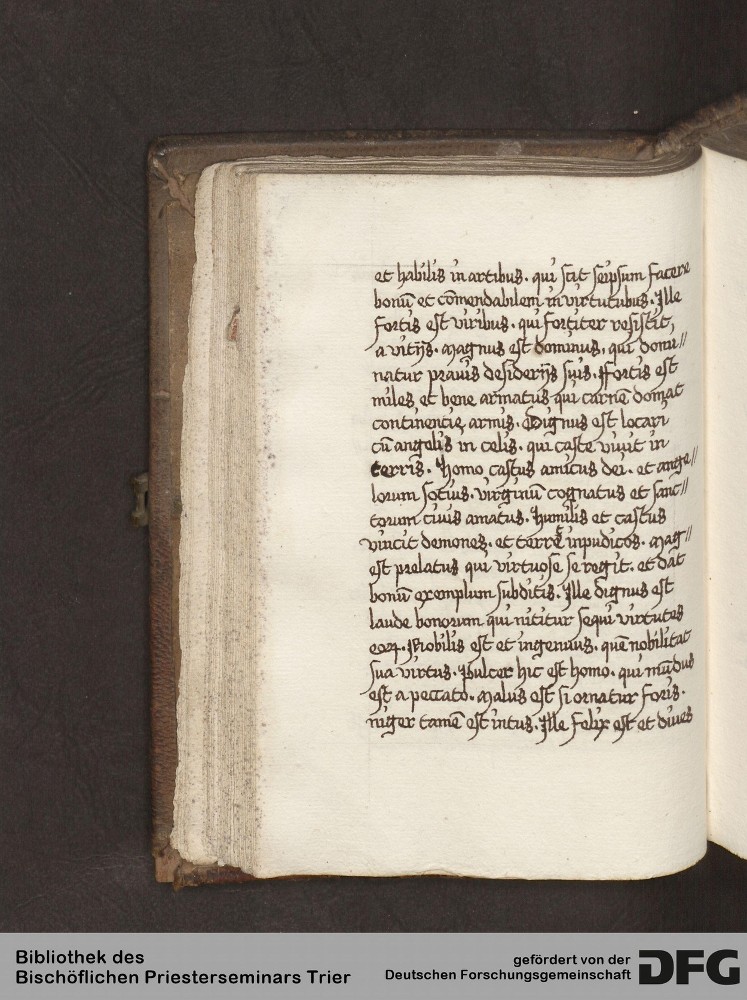 et habilis in artibus. qui scit seipsum facere
bonū et cōmendabilem in virtutubus. Ille
fortis est viribus. qui fortiter resistit,
a vitijs. Magnus est dominus, qui domi//
natur prauis desiderijs suis. ffortis est
miles et bene armatus qui carnē domat
continentię armis. Dignus est locari
cū angelis in celis. qui caste viuit in
terris. Homo castus amicus dei. et ange//
lorum socius. virginū cognatus et sanc//
torum ciuis amatus. Humilis et castus
vincit demones. et terrēt inpudicos. Mag//
est prelatus qui virtuose se regit. et dat
bonū exemplum subditis. Ille dignus est
laude bonorum qui nititur sequi virtutes
eoꝝ. Nobilis est et ingenuus. quē nobilitat
sua virtus. Pulcer hic est homo. qui mūdus
est a peccato. Malus est si ornatur foris.
niger tamē est intus. Ille felix est et diues
Bibliothek des
Bischöflichen Priesterseminars Trier
gefördert von der
Deutschen Forschungsgemeinschaft
DFG